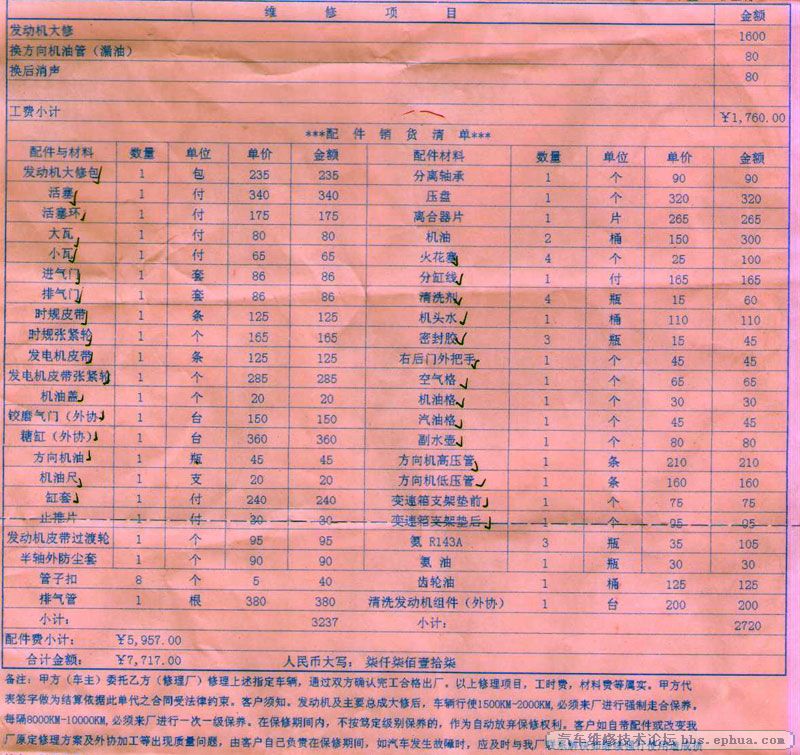 维 修 项 目 金额
发动机大修 1600
换方向机油管（漏油） 80
换后消声 80
工费小计 ¥1,760.00
***配 件 销 货 清 单***
配件与材料 数量 单位 单价 金额 配件材料 数量 单位 单价 金额
发动机大修包 1 包 235 235 分离轴承 1 个 90 90
活塞 1 付 340 340 压盘 1 个 320 320
活塞环 1 付 175 175 离合器片 1 片 265 265
大瓦 1 付 80 80 机油 2 桶 150 300
小瓦 1 付 65 65 火花塞 4 个 25 100
进气门 1 套 86 86 分缸线 1 付 165 165
排气门 1 套 86 86 清洗剂 4 瓶 15 60
时规皮带 1 条 125 125 机头水 1 桶 110 110
时规张紧轮 1 个 165 165 密封胶 3 瓶 15 45
发电机皮带 1 条 125 125 右后门外把手 1 个 45 45
发电机皮带张紧轮 1 个 285 285 空气格 1 个 65 65
机油盖 1 个 20 20 机油格 1 个 30 30
铰磨气门（外协） 1 台 150 150 汽油格 1 个 45 45
糖缸（外协） 1 台 360 360 副水壶 1 个 80 80
方向机油 1 瓶 45 45 方向机高压管 1 条 210 210
机油尺 1 支 20 20 方向机低压管 1 条 160 160
缸套 1 付 240 240 变速箱支架垫前 1 个 75 75
止推片 1 付 30 30 变速箱支架垫后 1 个 95 95
发动机皮带过渡轮 1 个 95 95 氨 R143A 3 瓶 35 105
半轴外防尘套 1 个 90 90 氨 油 1 瓶 30 30
管子扣 8 个 5 40 齿轮油 1 桶 125 125
排气管 1 根 380 380 清洗发动机组件（外协） 1 台 200 200
小计： 3237 小计： 2720
配件费小计： ¥5,957.00
合计金额： ¥7,717.00 人民币大写： 柒仟柒佰壹拾柒
备注：甲方（车主）委托乙方（修理厂）修理上述指定车辆，通过双方确认完工合格出厂。以上修理项目，工时费，材料费等属实。甲方代
表签字做为结算依据此单代之合同受法律约束。客户须知。发动机及主要总成大修后，车辆行使1500KM-2000KM,必须来厂进行强制走合保养。
每隔8000KM-10000KM,必须来厂进行一次一级保养。在保修期间内，不按笃定级别保养的，作为自动放弃保修权利。客户如自带配件或改变我
厂原定修理方案及外协加工等出现质量问题，由客户自己负责在保修期间，如汽车发生故障时，应及时与我厂
汽车维修技术论坛
bbs.ephua.com